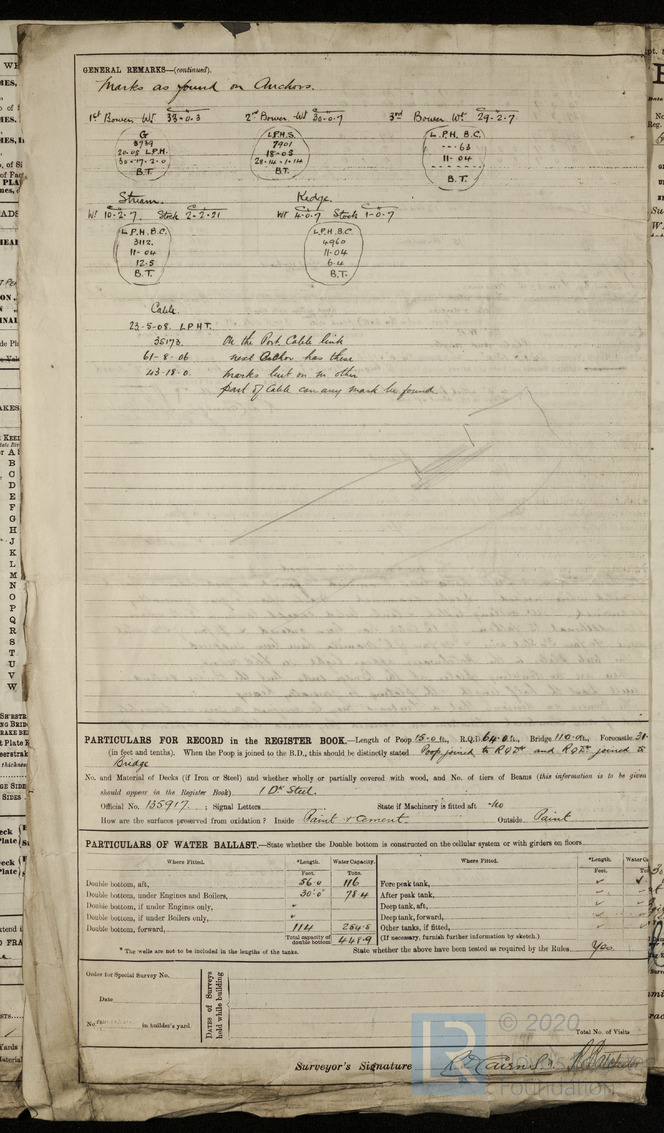 GENERAL REMARKS—(continued).
Marks as found on Anchors.
1st Bower Wt 33-0-3 2nd Bower Wt 30-0-7 3rd Bower Wt 29-2-7
G
3739
20-05 L.P.H.
30-17-2-0
B.T.
L.P.H.S.
7901
18-05
28-14-1-14
B.T.
L.P.H. B.C.
----63
11-04
B.T.
Stream. Kedge.
Wt 10-2-7. Stock 2-2-21 Wt 4-0-7 Stock 1-0-7
L.P.H. B.C.
3112.
11-04
12-5
B.T.
L.P.H. B.C.
4960
11-04
6-4
B.T.
Cable.
23-5-08. L P H T.
35173. On the Port Cable link
61-8-06 next Anchor has these
43-18-0. marks but on no other
part of Cable can any mark be found
PARTICULARS FOR RECORD in the REGISTER BOOK.—Length of Poop 15.0 ft., R.Q.D. 64.0 ft., Bridge 110.0 ft., Forecastle 31.
(in feet and tenths). When the Poop is joined to the B.D., this should be distinctly stated Poop joined to R Q Dk and R Q Dk joined to
Bridge
No. and Material of Decks (if Iron or Steel) and whether wholly or partially covered with wood, and No. of tiers of Beams (this information is to be given
should appear in the Register Book) 1 Dk Steel.
Official No. 135917. ; Signal Letters State if Machinery is fitted aft No
How are the surfaces preserved from oxidation? Inside Paint & Cement. Outside Paint
PARTICULARS OF WATER BALLAST.—State whether the Double bottom is constructed on the cellular system or with girders on floors
Where Fitted. *Length. Water Capacity. Where Fitted. *Length. Water Ca
Feet. Tons. Feet.
Double bottom, aft, 56.0 116 Fore peak tank, ✓ ✓
Double bottom, under Engines and Boilers, 30.0 78.4 After peak tank, ✓
Double bottom, if under Engines only, " Deep tank, aft, ✓
Double bottom, if under Boilers only, " Deep tank, forward, ✓
Double bottom, forward, 114 254.5 Other tanks, if fitted, ✓
Total capacity of double bottom 448.9 (If necessary, furnish further information by sketch.)
* The wells are not to be included in the lengths of the tanks. State whether the above have been tested as required by the Rules Yes
Order for Special Survey No.
Date
No. in builder's yard.
DATES of Surveys held while building
Total No. of Visits
Surveyor's Signature
© 2020
Foundation